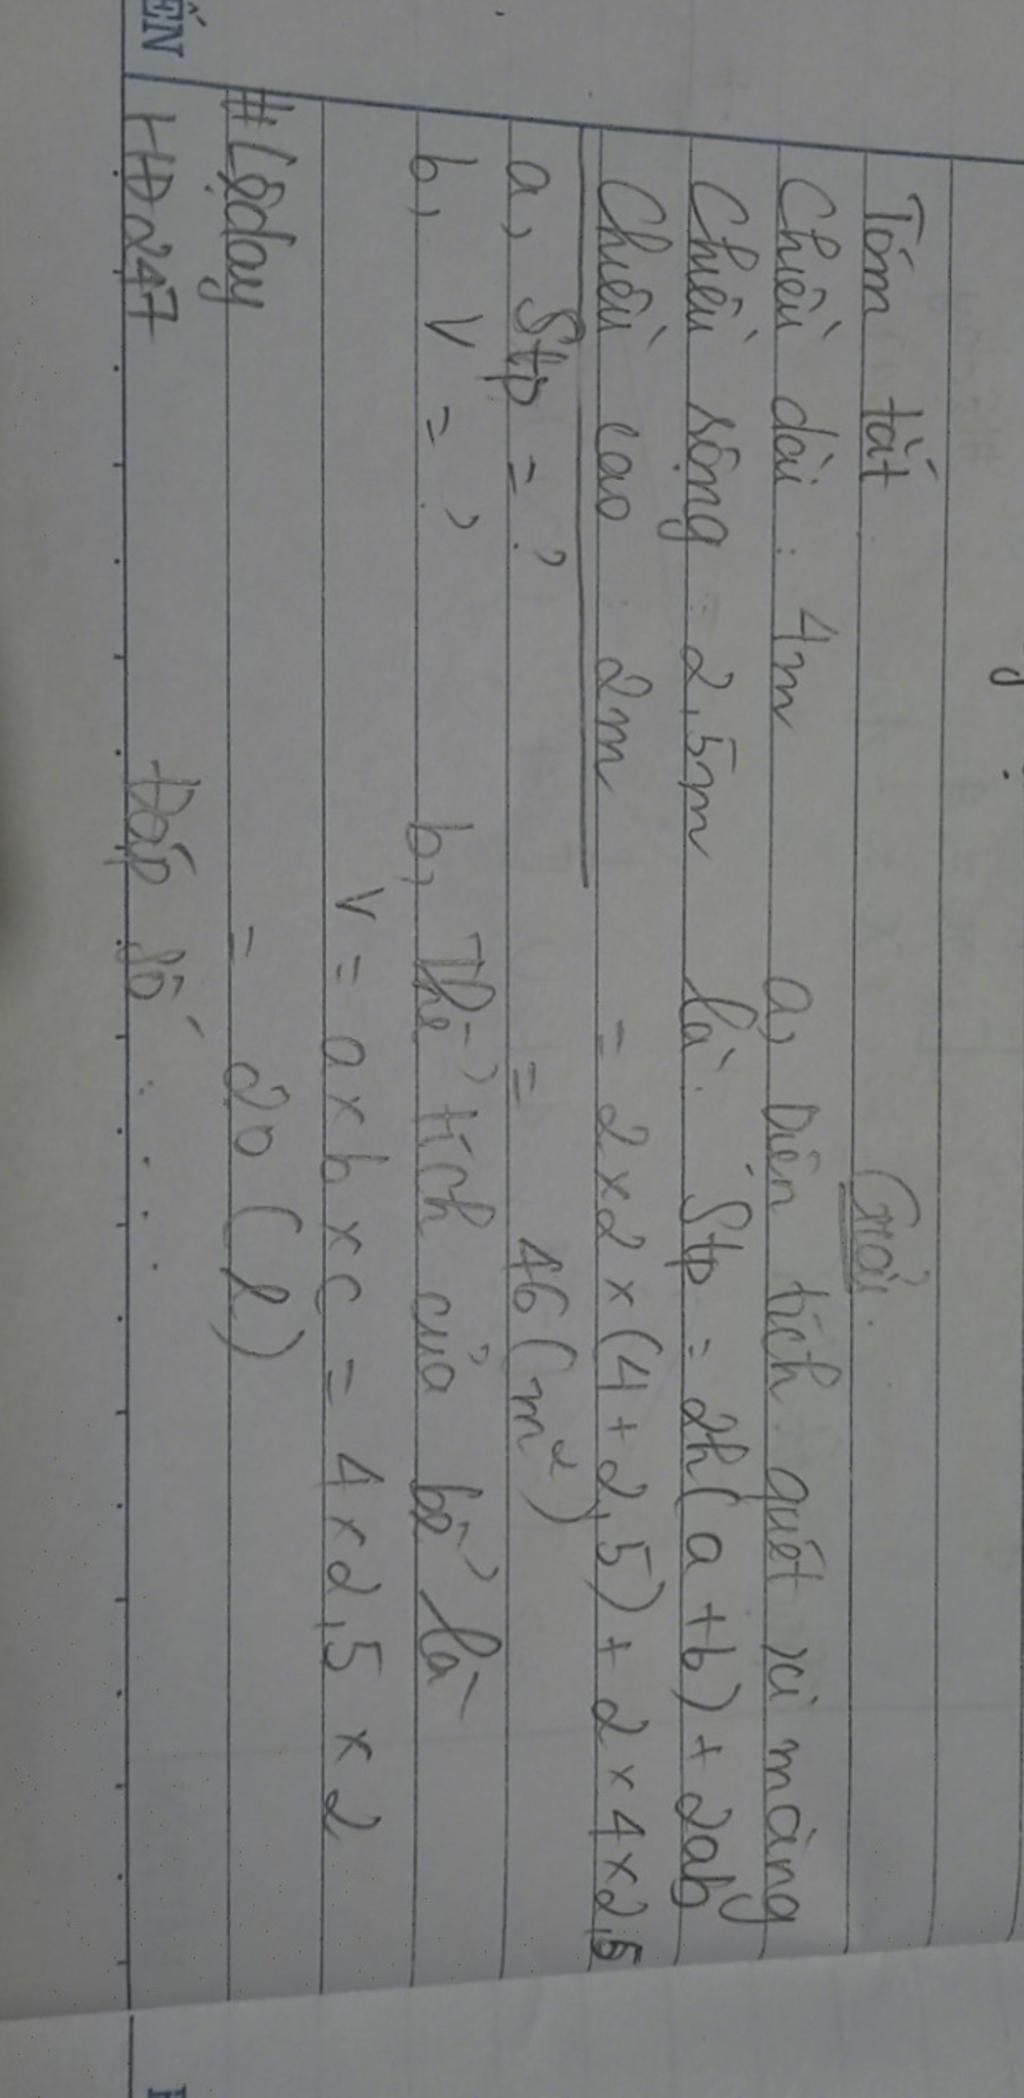 Tóm tắt
Giải.
Chiều dài : 4m
a, Diện tích quét xi măng
Chiều rộng : 2,5m
là: Stp = 2h(a+b) + 2ab
Chiều cao : 2m
= 2x2 x (4+2,5) + 2 x 4 x 2,5
a, Stp = ?
= 46 (m²)
b, V = ?
b, Thể tích của bể là
V = a x b x c = 4 x 2,5 x 2
#Lqday
= 20 (l)
HD247
Đáp số : . . .
ẾN